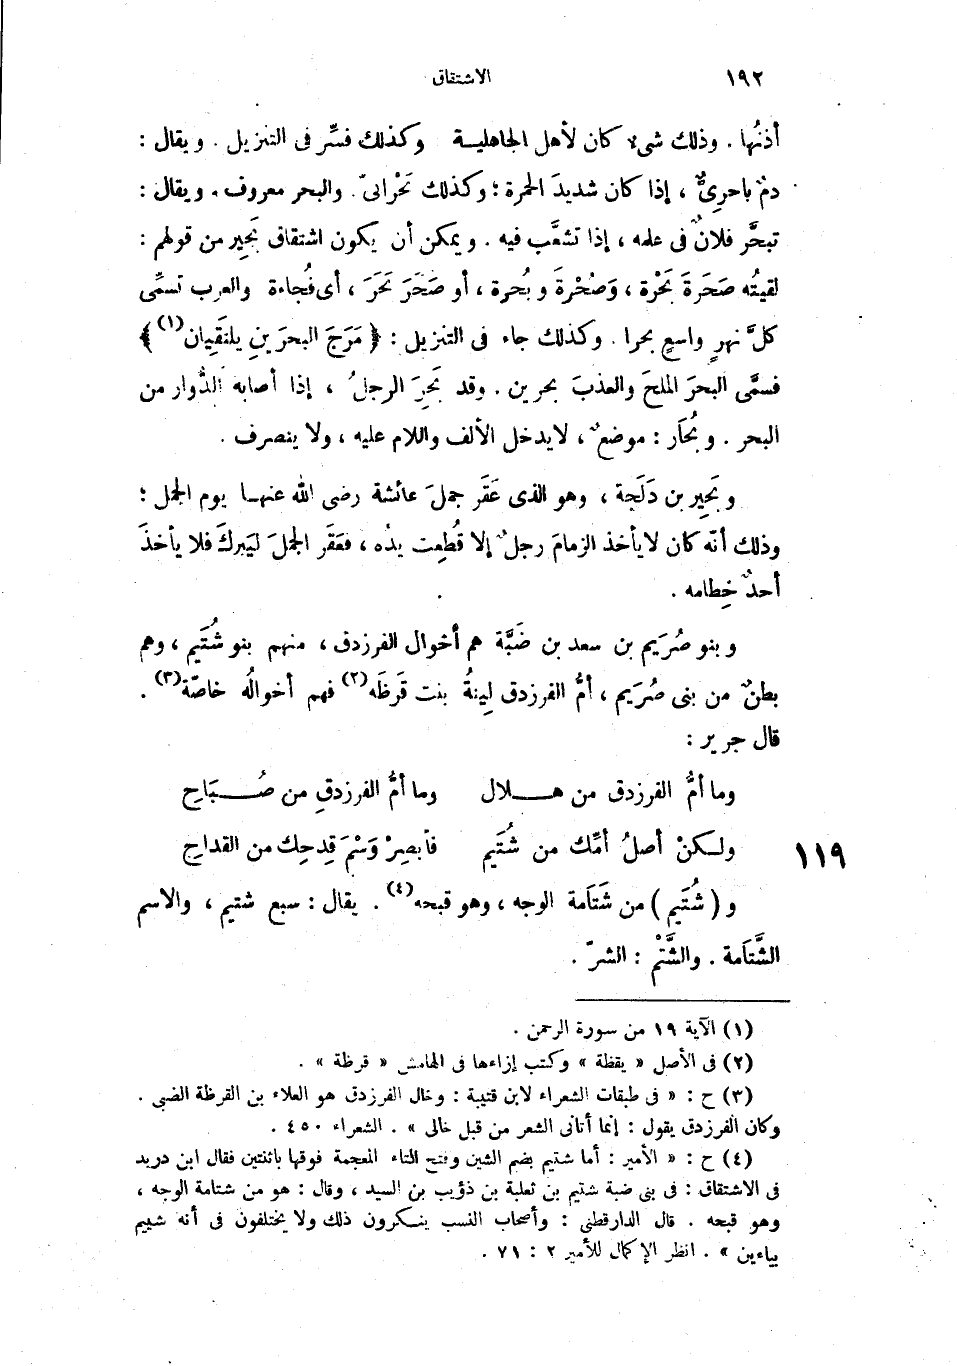 ١٩٢
الاشتقاق
أذنُها . وذلك شىء كان لأهل الجاهلية وكذلك فسِّر فى التنزيل . ويقال :
دمٌ باحرىٌّ ، إذا كان شديدَ الحمرة ؛ وكذلك بَحْرانىّ . والبحر معروف . ويقال :
تبحَّر فلانٌ فى علمه ، إذا تشعَّب فيه . ويمكن أن يكون اشتقاق بَحِير من قولهم :
لقيتُه صَحَرةَ بَحْرة ، وَصُحْرةَ وبُحرة ، أو صَحَرَ بَحَرَ ، أى فُجاءة والعرب تسمِّى
كلَّ نهرٍ واسعٍ بحرا . وكذلك جاء فى التنزيل : ﴿ مَرَجَ البحرَينِ يلتَقِيان (١) ﴾
فسمَّى البحرَ الملحَ والعذبَ بحرين . وقد بَحِرَ الرجلُ ، إذا أصابه الدُّوار من
البحر . وبُحَار : موضعٌ ، لايدخل الألف واللام عليه ، ولا ينصرف .
وبَحِير بن دَلَجة ، وهو الذى عَقَر جملَ عائشة رضى الله عنها يوم الجمل ؛
وذلك أنّه كان لايأخذ الزمامَ رجلٌ إلا قُطِعت يدُه ، فعَقَر الجملَ ليَبركَ فلا يأخذَ
أحدٌ خِطامه .
وبنو صُرَيم بن سعد بن ضَبَّة هم أخوال الفرزدق ، منهم بنو شُتَيم ، وهم
بطنٌ من بنى صُرَيم ، أمُّ الفرزدق لِينةُ بنت قَرظَه (٢) فهم أخوالُه خاصّة (٣) .
قال جرير :
وما أمُّ الفرزدق من هـلال وما أمُّ الفرزدقِ من صُـبَاحِ
ولـكنْ أصلُ أمِّك من شُتَيم فأبصِرْ وَسْمَ قِدحِك من القداحِ
١١٩
و ( شُتَيم ) من شَتَامة الوجه ، وهو قبحه (٤) . يقال : سبع شتيم ، والاسم
الشَّتَامة . والشَّتْم : الشرّ .
(١) الآية ١٩ من سورة الرحمن .
(٢) فى الأصل « يقظة » وكتب إزاءها فى الهامش « قرظة » .
(٣) ح : « فى طبقات الشعراء لابن قتيبة : وخال الفرزدق هو العلاء بن القرظة الضبى .
وكان الفرزدق يقول : إنما أتانى الشعر من قبل خالى » . الشعراء ٤٥٠ .
(٤) ح : « الأمير : أما شتيم بضم الشين وفتح التاء المعجمة فوقها باثنتين فقال ابن دريد
فى الاشتقاق : فى بنى ضبة شتيم بن ثعلبة بن ذؤيب بن السيد ، وقال : هو من شتامة الوجه ،
وهو قبحه . قال الدارقطنى : وأصحاب النسب ينكرون ذلك ولا يختلفون فى أنه شييم
بياءين » . انظر الإكمال للأمير ٢ : ٧١ .